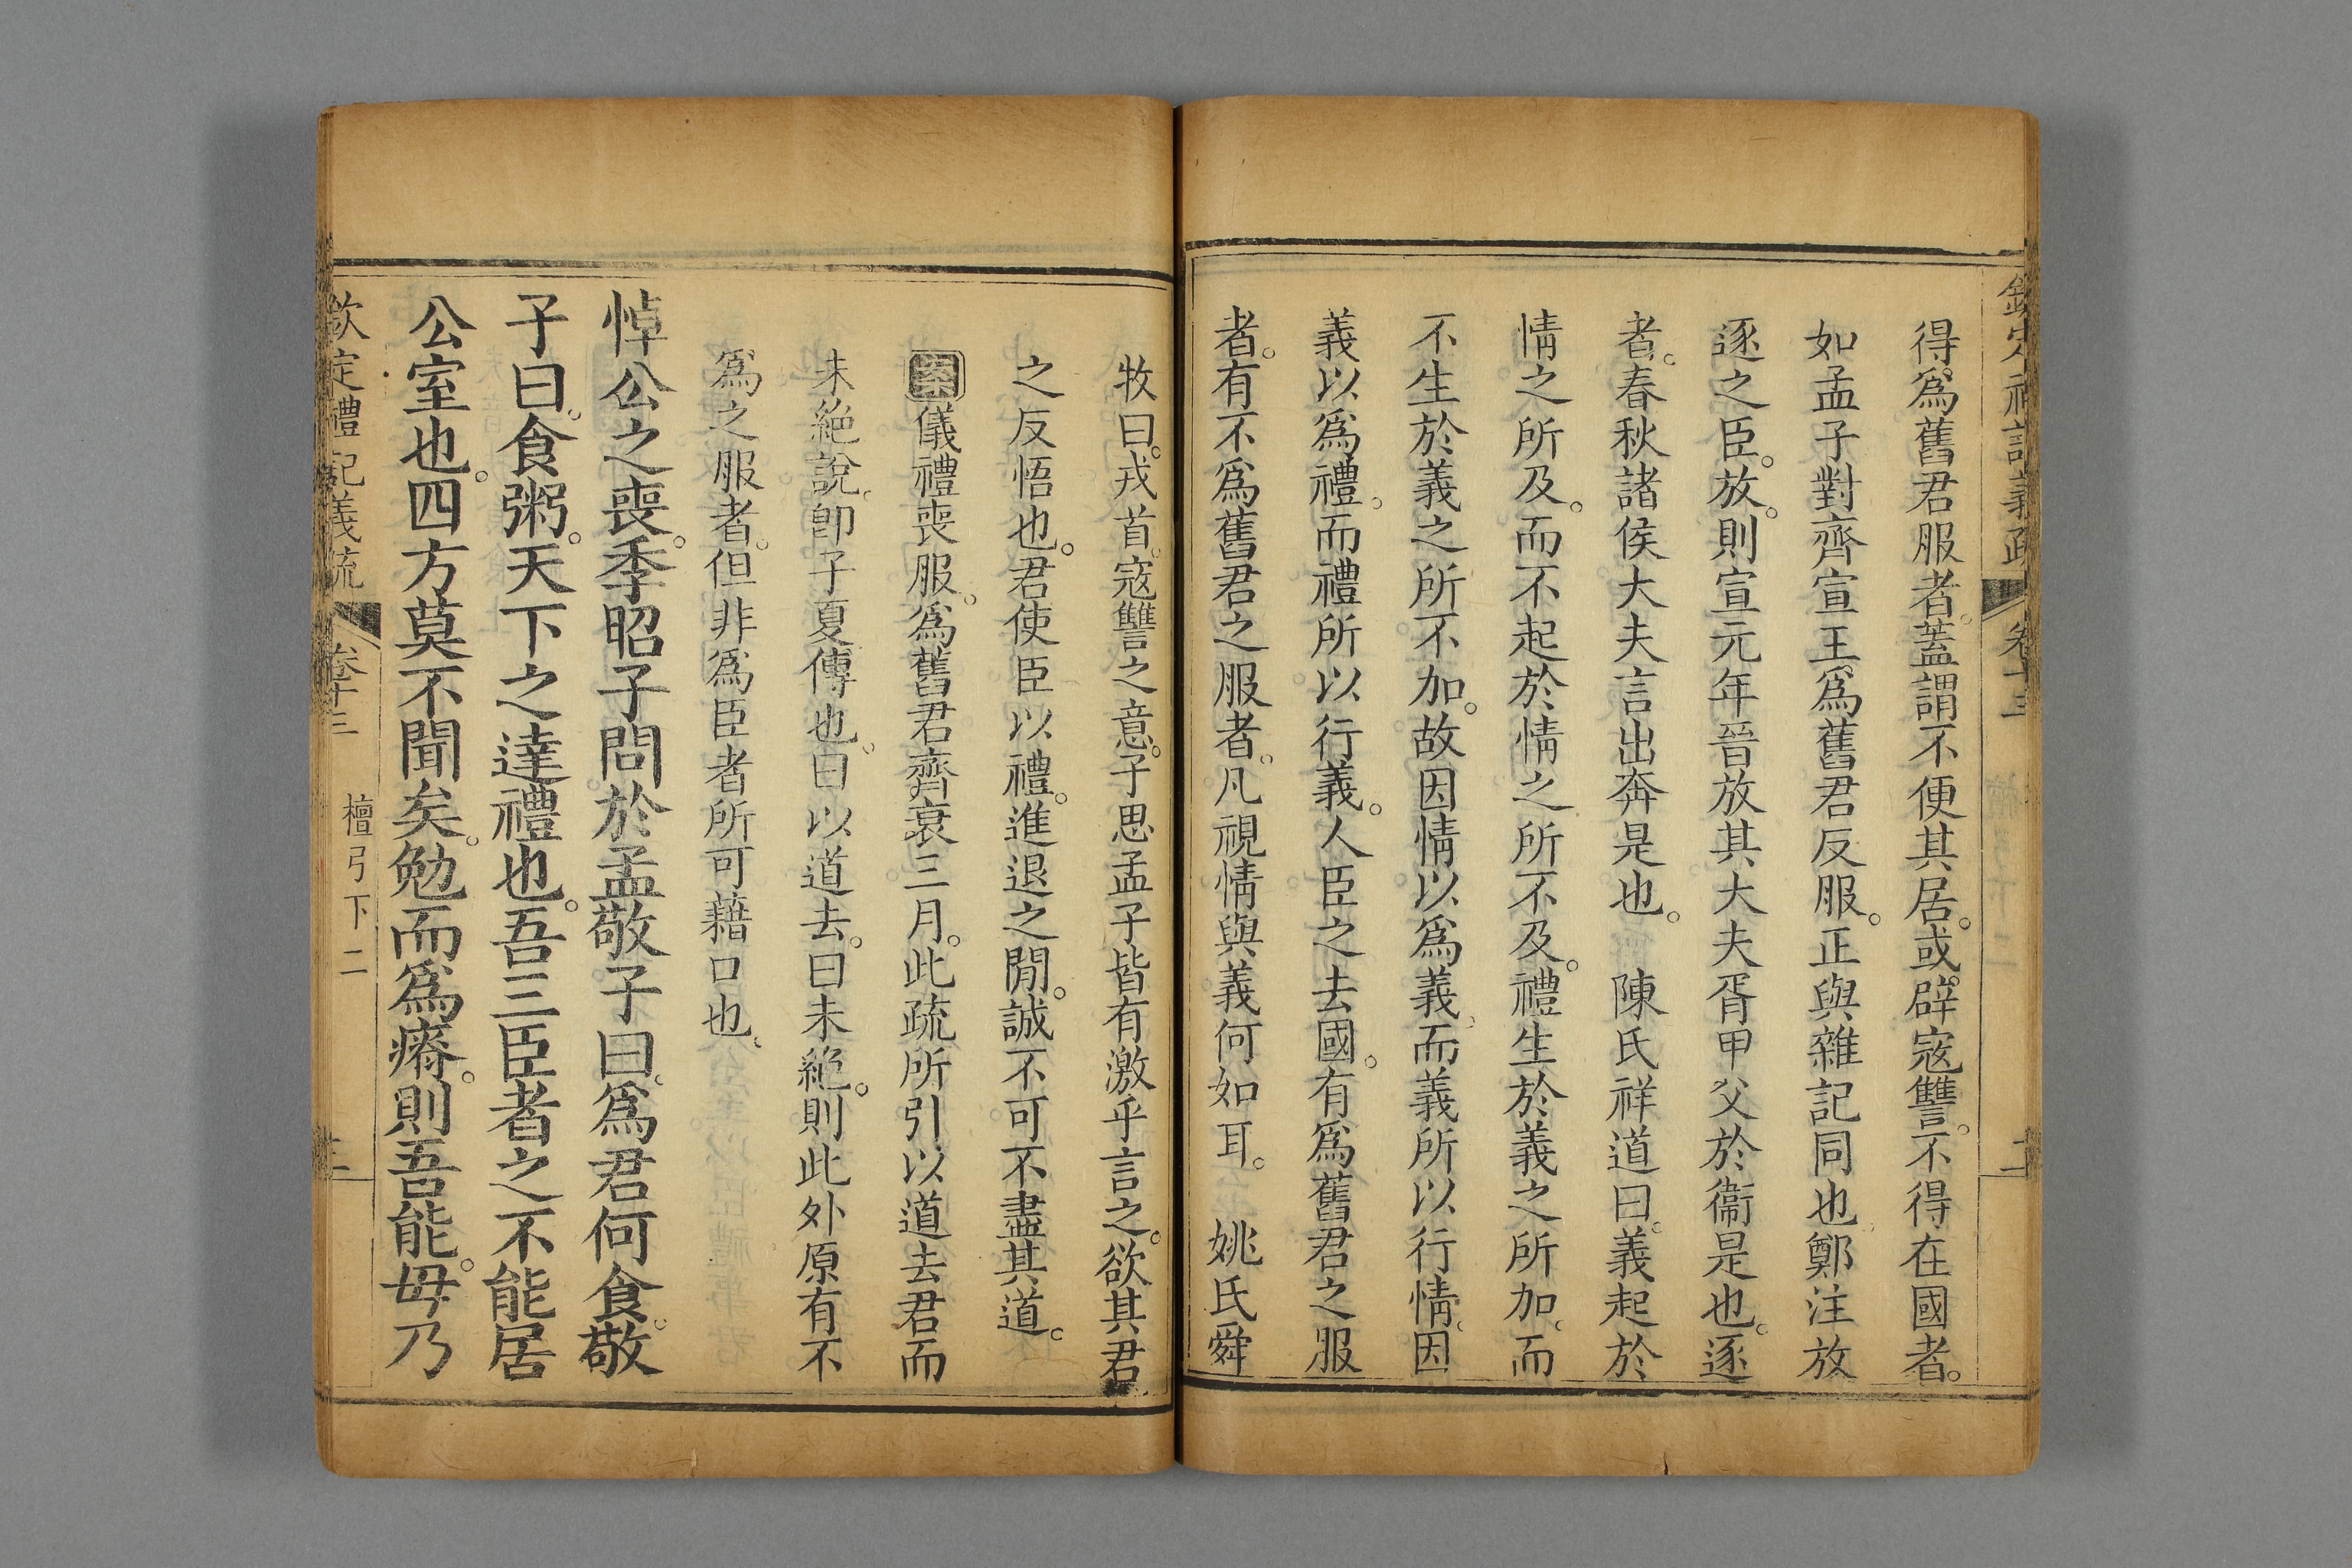 得爲舊君服者。蓋謂不便其居。或辟寇讐。不得在國者。
如孟子對齊宣王。爲舊君反服。正與雜記同也。鄭注放
逐之臣。放。則宣元年晉放其大夫胥甲父於衞是也。逐
者。春秋諸侯大夫言出奔是也。 陳氏祥道曰。義起於
情之所及。而不起於情之所不及。禮生於義之所加。而
不生於義之所不加。故因情以爲義。而義所以行情。因
義以爲禮。而禮所以行義。人臣之去國。有爲舊君之服
者。有不爲舊君之服者。凡視情與義何如耳。 姚氏舜
牧曰。戎首。寇讐之意。子思孟子皆有激乎言之。欲其君
之反悟也。君使臣以禮。進退之閒。誠不可不盡其道。
案儀禮喪服。爲舊君齊衰三月。此疏所引以道去君而
未絶說。卽子夏傳也。曰以道去。曰未絶。則此外原有不
爲之服者。但非爲臣者所可藉口也。
悼公之喪。季昭子問於孟敬子曰。爲君何食。敬
子曰。食粥。天下之達禮也。吾三臣者之不能居
公室也。四方莫不聞矣。勉而爲瘠。則吾能。毋乃
欽定禮記義疏 卷十三 檀弓下二